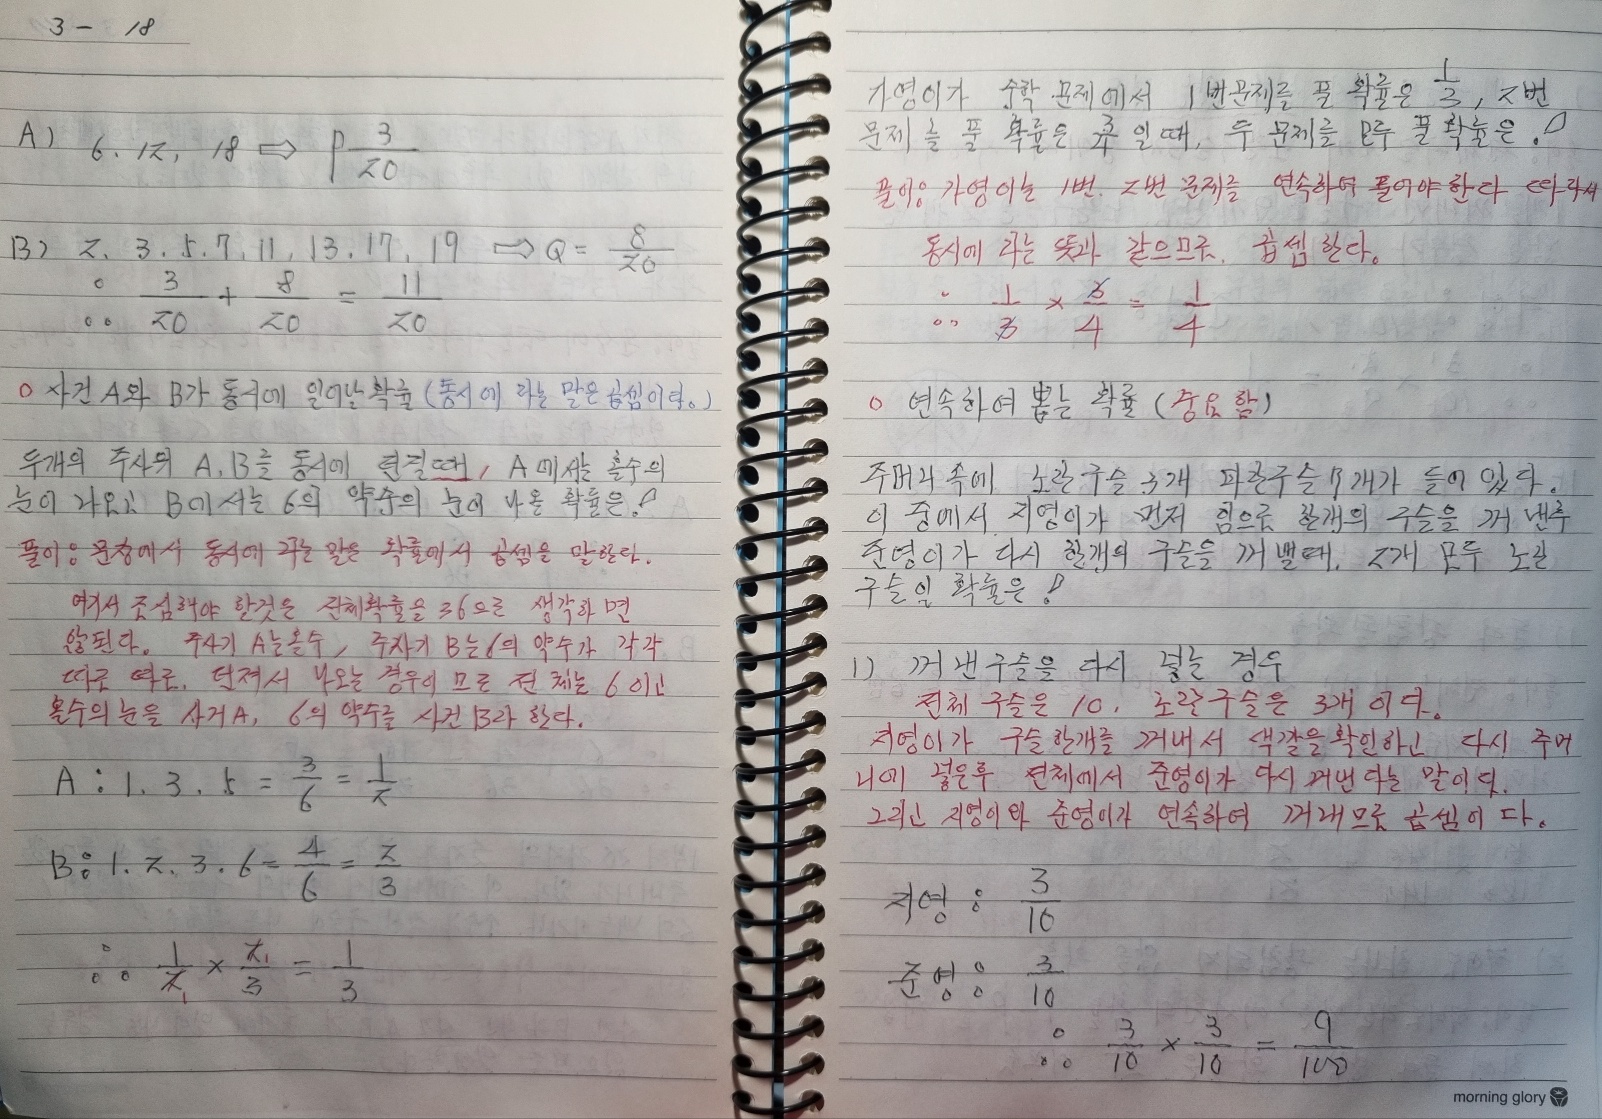 3 - 18
A) 6. 12, 18 ⇒ P 3/20
B) 2. 3. 5. 7, 11, 13. 17, 19 ⇒ Q = 8/20
∴ 3/20 + 8/20 = 11/20
o 사건 A와 B가 동시에 일어날 확률 (동시에 라는 말은 곱셈이다.)
두개의 주사위 A, B를 동시에 던질때, A에서는 홀수의
눈이 나오고 B에서는 6의 약수의 눈이 나올 확률은?
풀이: 문장에서 동시에 라는 말은 확률에서 곱셈을 말한다.
여기서 조심해야 할것은 전체확률을 36으로 생각하면
않된다. A는홀수, B는 6의 약수가 각각
따로 따로. 던져서 나오는 경우이므로 전체는 6이고
홀수의 눈을 사건A, 6의 약수를 사건 B라 한다.
A : 1. 3. 5 = 3/6 = 1/2
B: 1. 2. 3. 6 = 4/6 = 2/3
∴ 1/2 × 2/3 = 1/3
가영이가 수학 문제에서 1번문제를 풀 확률은 1/3, 2번
문제를 풀 확률은 3/4 일때, 두 문제를 모두 풀 확률은?
풀이: 가영이는 1번. 2번 문제를 연속하여 풀어야 한다 따라서
동시에 라는 뜻과 같으므로. 곱셈한다.
∴ 1/3 × 3/4 = 1/4
o 연속하여 뽑는 확률 (중요함)
주머니 속에 노란구슬 3개 파란구슬 7개가 들어 있다.
이 중에서 지영이가 먼저 한개의 구슬을 꺼낸후
준영이가 다시 한개의 구슬을 꺼낼때, 2개 모두 노란
구슬일 확률은?
1) 꺼낸구슬을 다시 넣는 경우
전체 구슬은 10, 노란구슬은 3개 이다.
지영이가 구슬한개를 꺼내서 색깔을확인하고 다시 주머
니에 넣은후 전체에서 준영이가 다시 꺼낸다는 말이다.
그리고 지영이와 준영이가 연속하여 꺼내므로 곱셈이다.
지영 : 3/10
준영: 3/10
∴ 3/10 × 3/10 = 9/100
morning glory